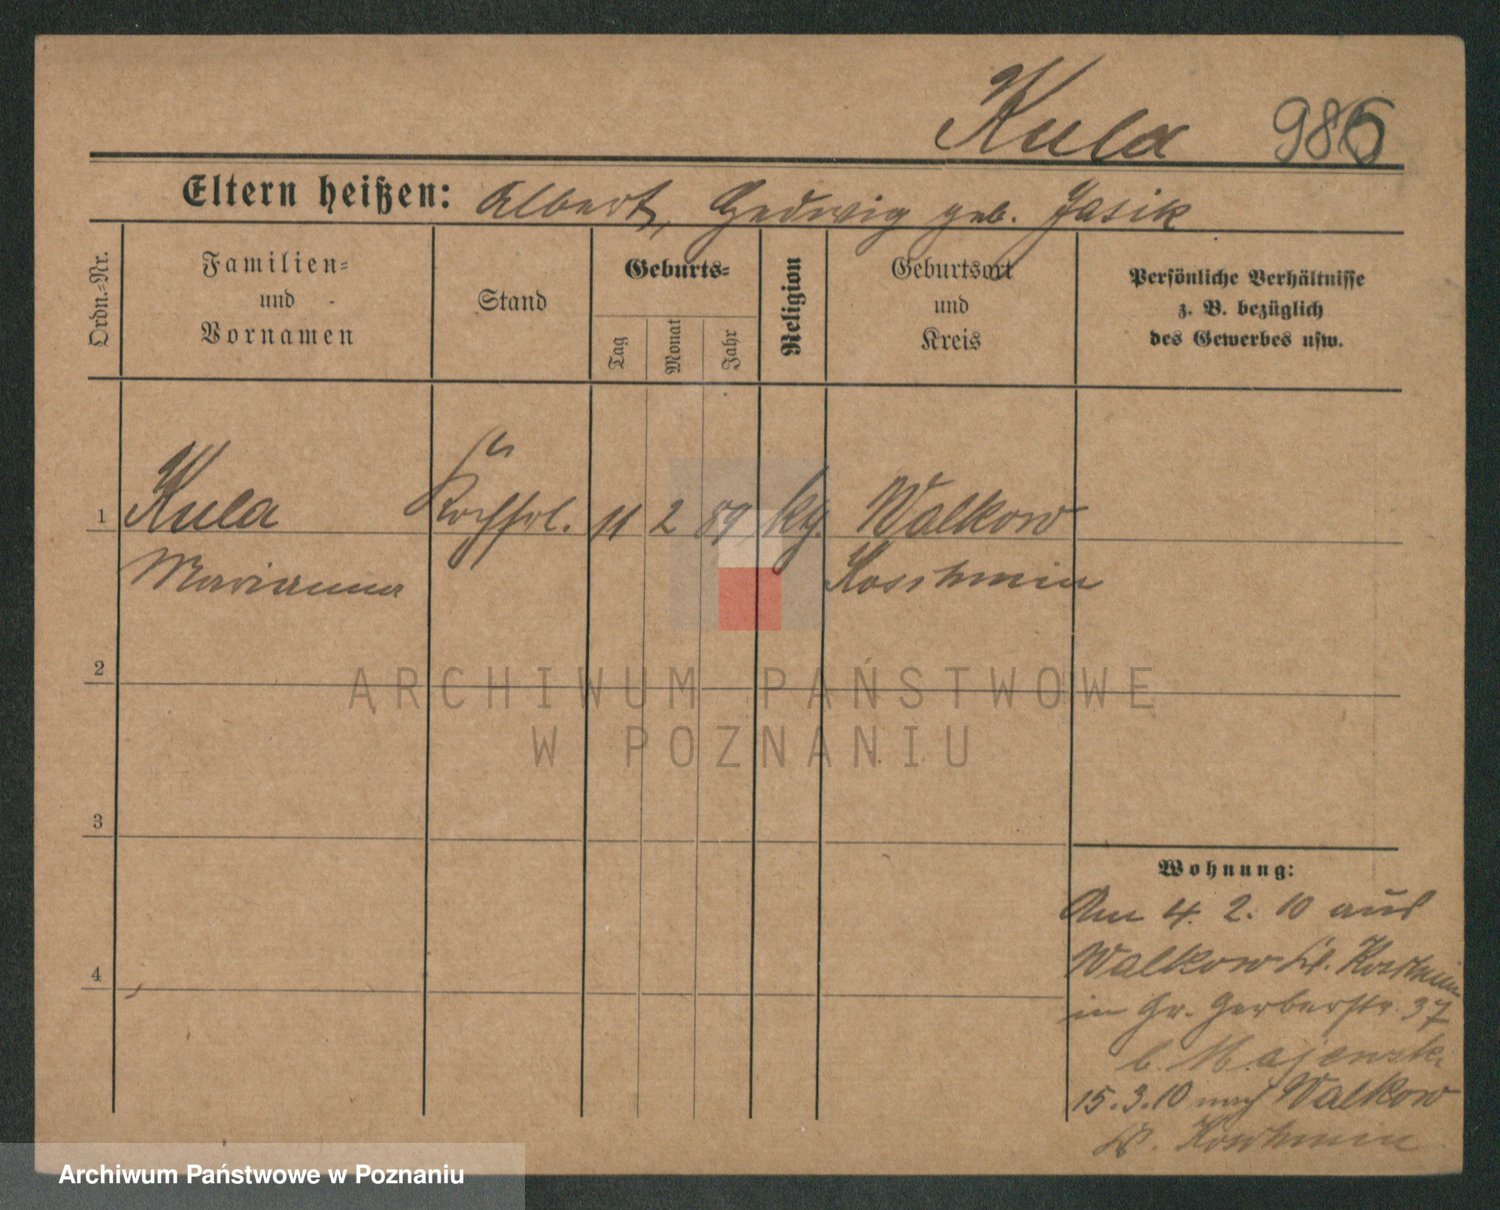 Kula 986
Eltern heißen: Albert, Hedwig geb. Jasik
Ordn.-Nr.
Familien-
und
Vornamen
Stand
Geburts-
Tag
Monat
Jahr
Religion
Geburtsort
und
Kreis
Persönliche Verhältnisse
z. B. bezüglich
des Gewerbes usw.
1 Kula 11 2 89 kg. Walkow
Marianna Koschmin
2
3
4
Wohnung:
Am 4. 2. 10 aus
Walkow Kr. Koschmin
in Gr. Gerberstr. 37
b. Majewski
15.3.10 nach Walkow
Kr. Koschmin
ARCHIWUM PAŃSTWOWE
W POZNANIU
Archiwum Państwowe w Poznaniu